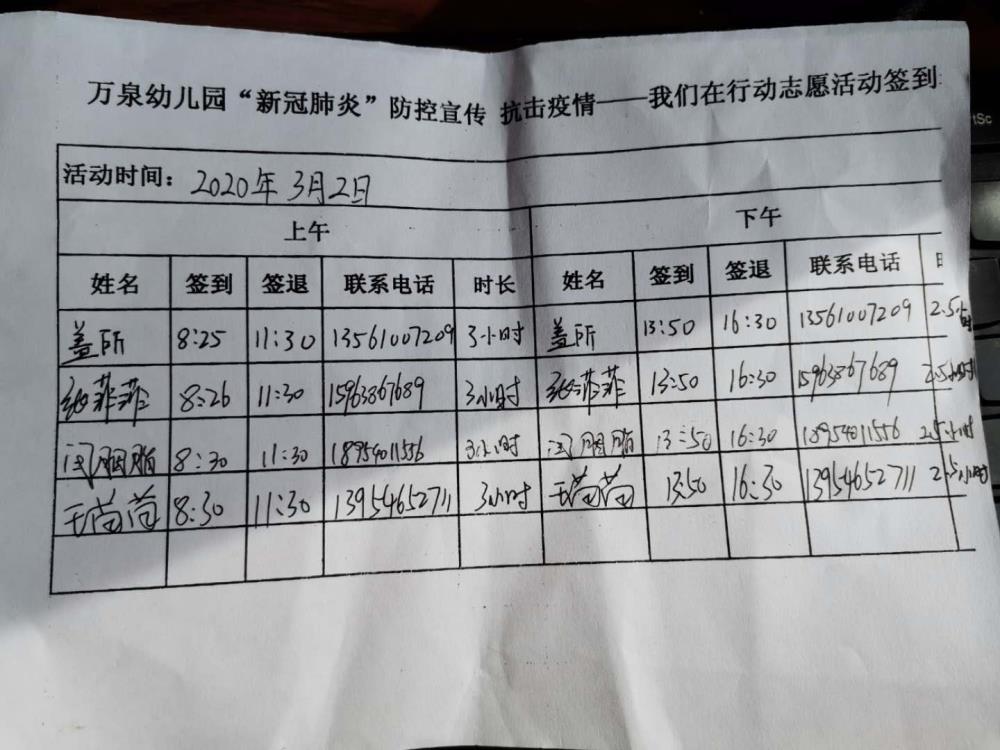 万泉幼儿园“新冠肺炎”防控宣传 抗击疫情——我们在行动志愿活动签到
活动时间：2020年3月2日
上午 下午
姓名 签到 签退 联系电话 时长 姓名 签到 签退 联系电话
盖所 8:25 11:30 13561007209 3小时 盖所 13:50 16:30 13561007209 2.5小时
菲菲 8:26 11:30 15963867689 3小时 菲菲 13:50 16:30 15963867689 2.5小时
闫胭脂 8:30 11:30 18954011556 3小时 闫胭脂 13:50 16:30 18954011556 2.5小时
王苗苗 8:30 11:30 13954652711 3小时 王苗苗 13:50 16:30 13954652711 2.5小时
tSc